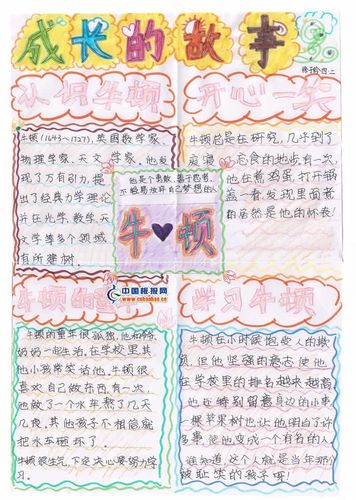 成长的故事
四.二
认识牛顿
开心一笑
牛顿(1643～1727),英国数学家、
物理学家、天文学家,他发
现了万有引力,提
出了经典力学理论
并在光学,数学,天
文学等多个领域
有所建树.
牛顿总是在研究,几乎到了
忘食的地步有一次
他在煮鸡蛋,打开锅
盖一看,发现里面煮
的居然是他的怀表!
他是个勇敢、善于思考、
不轻易放弃自己梦想的人
牛 顿
中国板报网
www.cnbanbao.cn
牛顿的
学习牛顿
牛顿的童年很孤独,他和爷爷
奶奶一起生活,在学校里其
他小孩常笑话他,牛顿很
喜欢自己做东西,有一次,
他做了一个水车熬了几天
几夜,其他孩子不相信就
把水车砸坏了.
牛顿很生气,下定决心要努力学
习.
牛顿在小时候饱受人的欺
负,但他坚强的意志使他
在学校里的排名越来越高
他还特别留意身边的小事
一棵苹果树也让他明白了许
多事使他变成一个有名的人
谁知道,这个人就是当年那个
被耻笑的孩子呀!